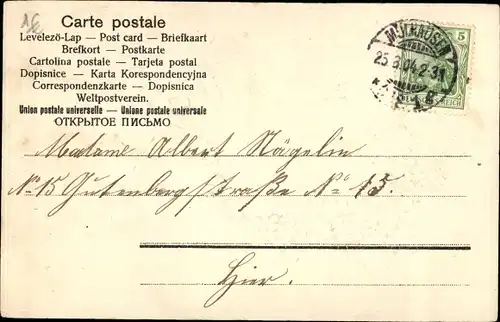 Carte postale
Levelező-Lap — Post card — Briefkaart
Brefkort — Postkarte
Cartolina postale — Tarjeta postal
Dopisnice - Karta Korespondencyjna
Correspondenzkarte — Dopisnica
Weltpostverein.
Union postale universelle — Unione postale universale
ОТКРЫТОЕ ПИСЬМО
5
REICH
Madame Albert Nägelin
No 15 Gutenbergstraße No 15.
Hier.